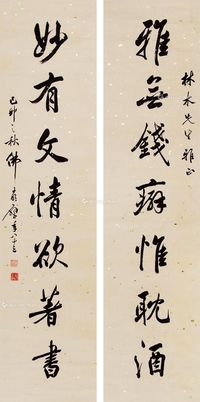 林木先生雅正
雅無錢癖惟耽酒
妙有文情欲著書
己卯之秋佛
年八十三